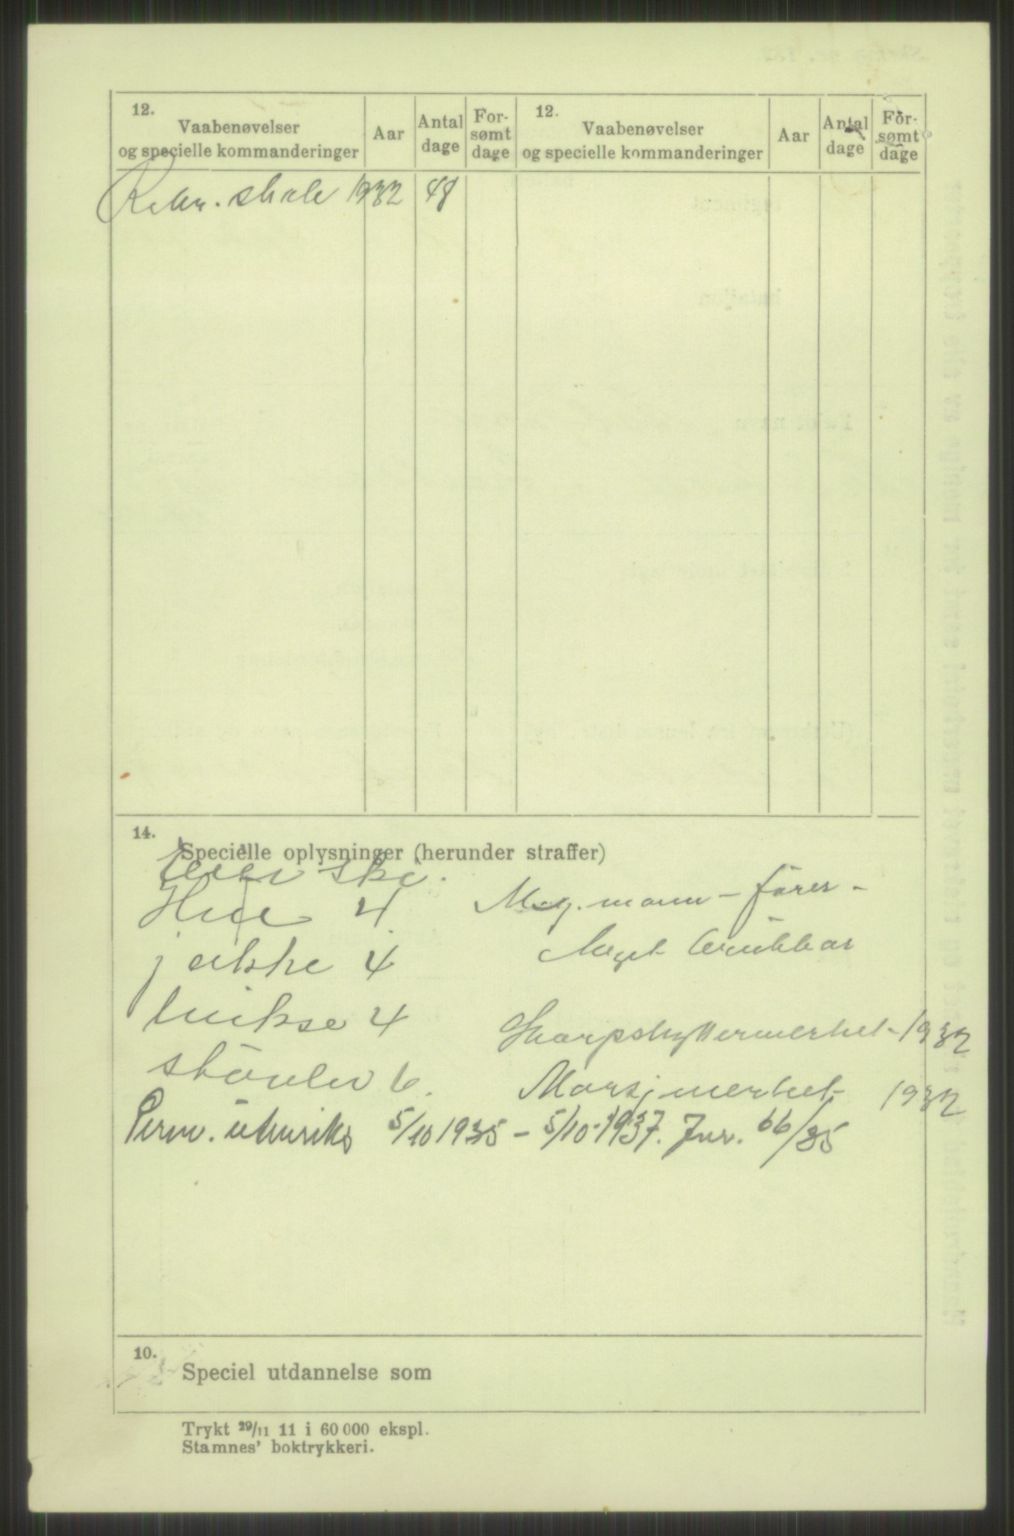 12. Vaabenøvelser og specielle kommanderinger Aar Antal dage For-sømt dage 12. Vaabenøvelser og specielle kommanderinger Aar Antal dage For-sømt dage
Rekr. skole 1932 48
14. Specielle oplysninger (herunder straffer)
ski.
Hue 4 Mg. mann - fører -
jakke 4 Meget brukbar
bukse 4 Skarpskyttermerket - 1932
støvler 6. Marsjmerket 1932
Perm. utenriks 5/10 1935 - 5/10-1937. Jnr. 66/35
10. Speciel utdannelse som
Trykt 29/11 11 i 60 000 ekspl.
Stamnes' boktrykkeri.